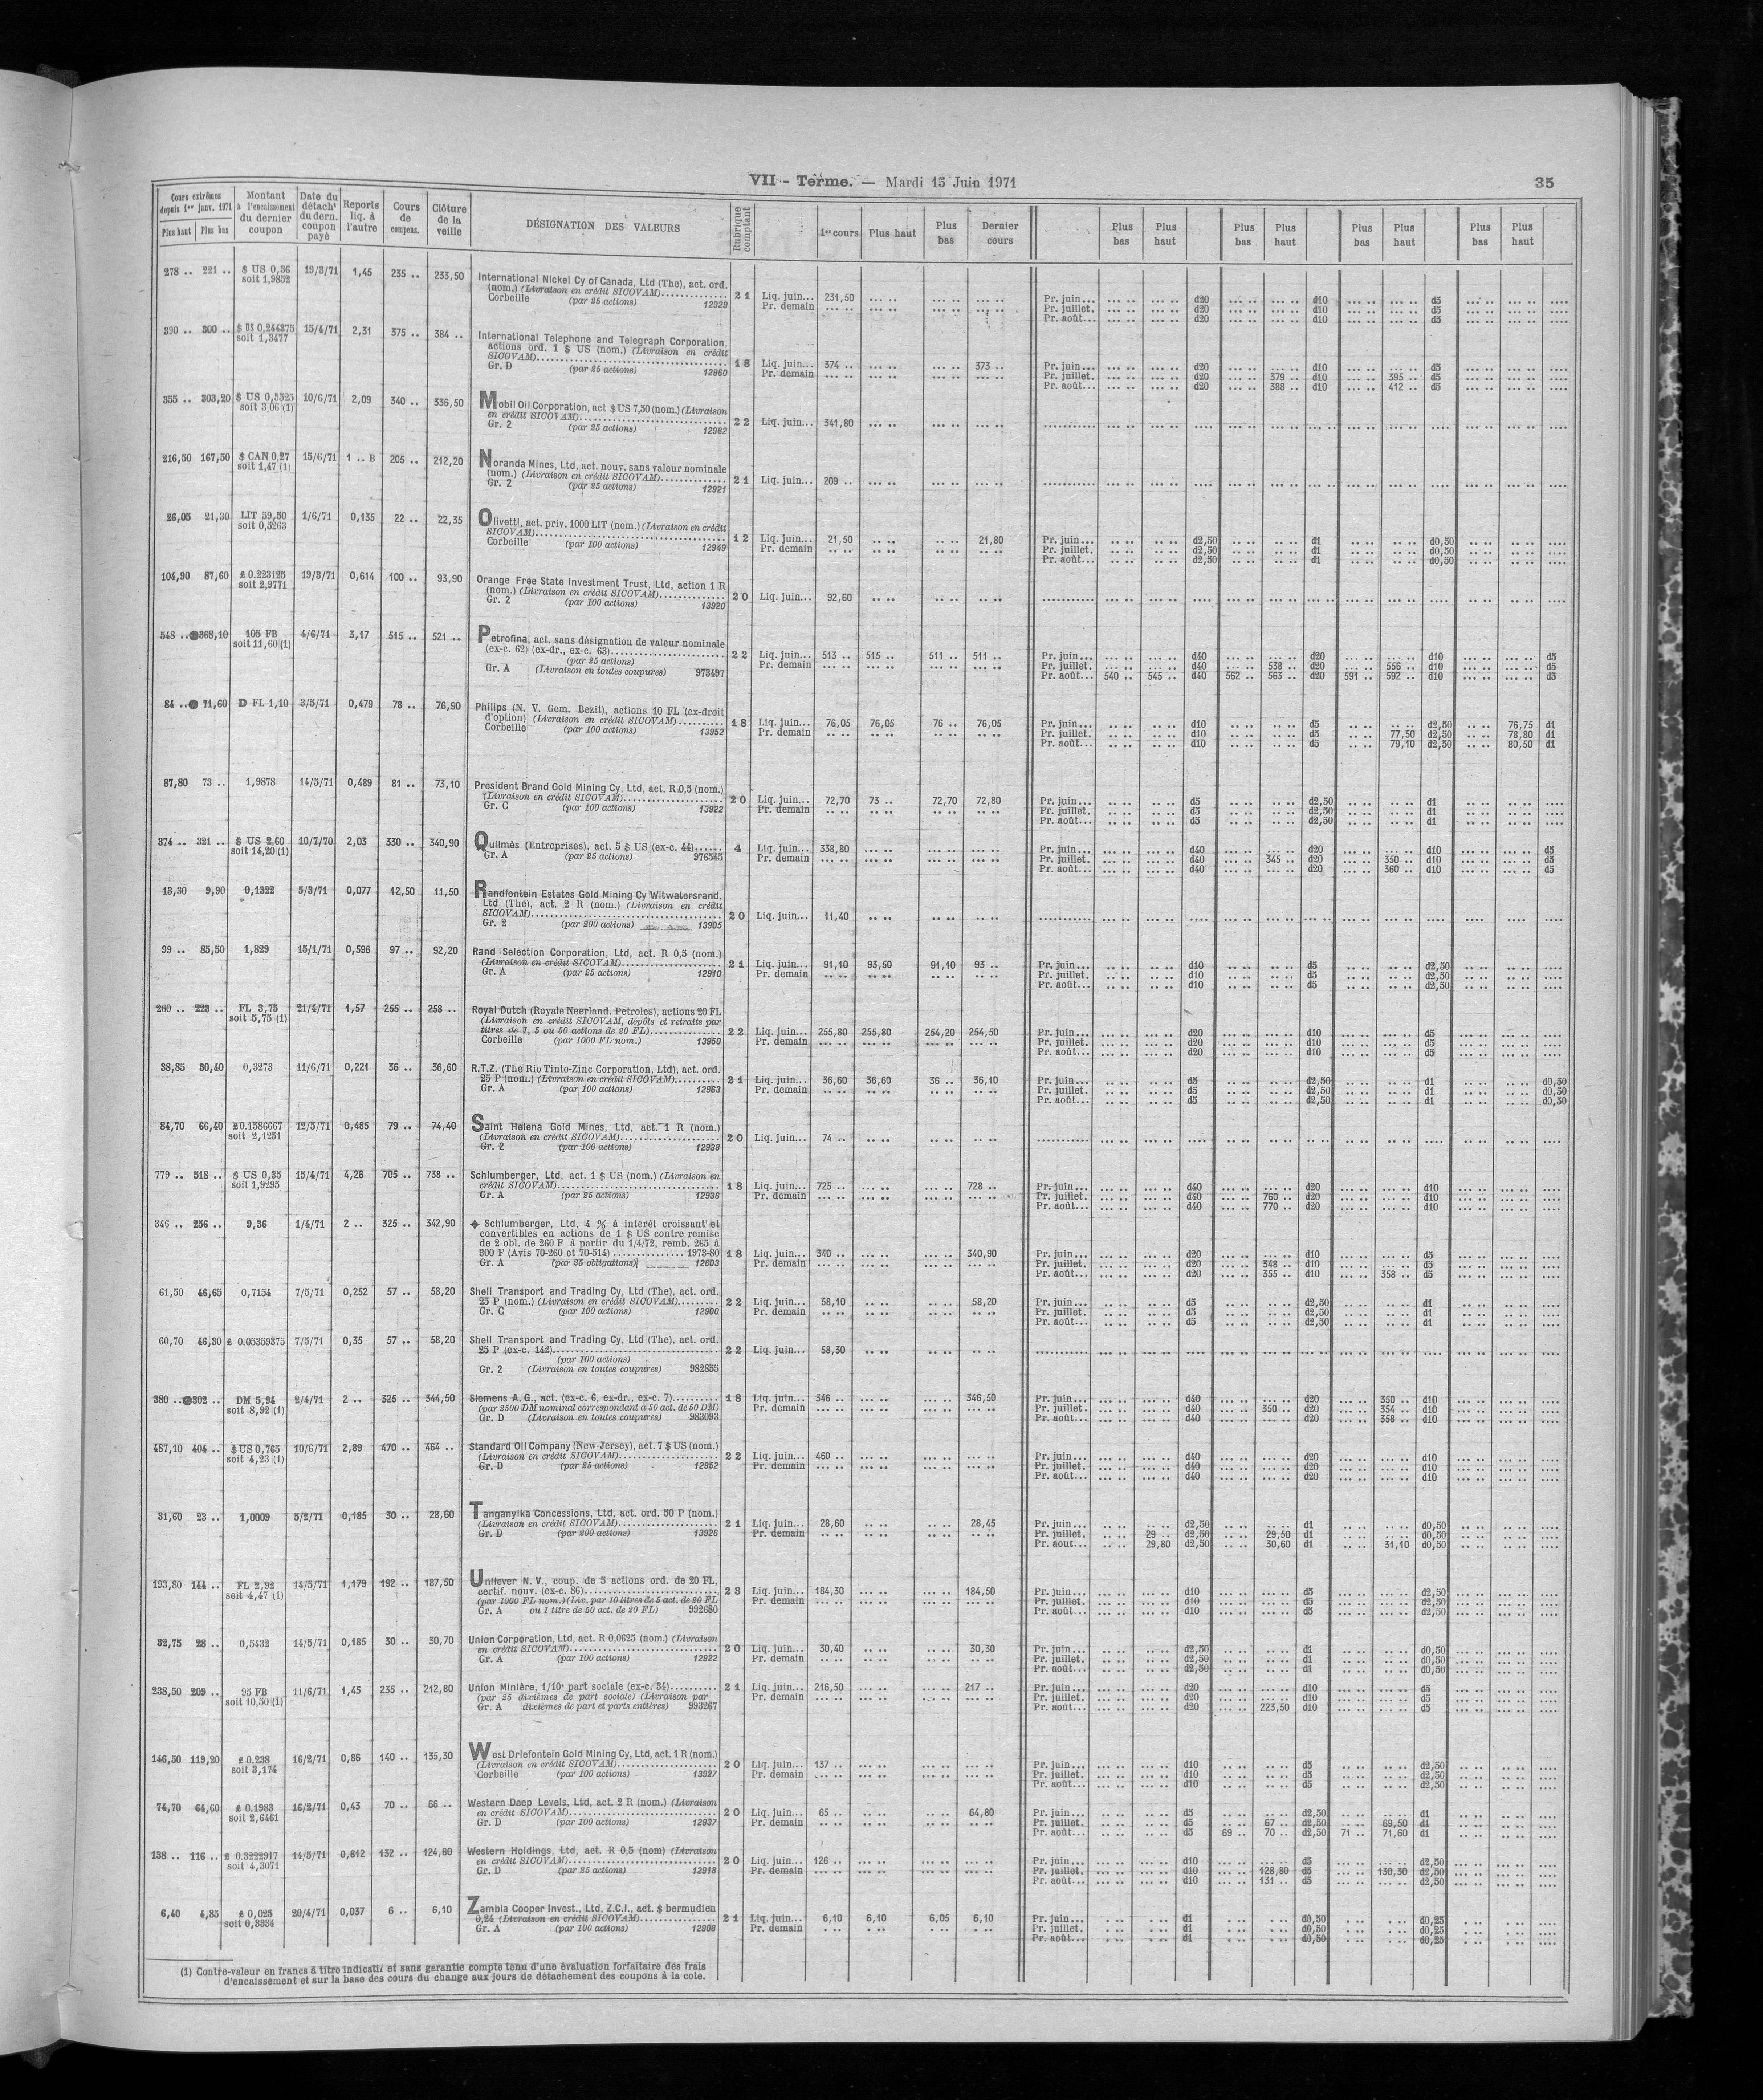 VII - Terme. — Mardi 15 Juin 1971 35
Cours extrêmes depuis 1er janv. 1971 Plus haut Plus bas Montant à l'encaissement du dernier coupon Date du détacht du dern. coupon payé Reports liq. à l'autre Cours de compens. Clôture de la veille DÉSIGNATION DES VALEURS Rubrique comptant 1er cours Plus haut Plus bas Dernier cours Plus bas Plus haut Plus bas Plus haut Plus bas Plus haut Plus bas Plus haut
278 .. 221 .. $ US 0,36 19/3/71 1,45 235 .. 233,50 International Nickel Cy of Canada, Ltd (The), act. ord.
soit 1,9852 (nom.) (Livraison en crédit SICOVAM) 21 Liq. juin... 231,50 Pr. juin... d20 d10 d5
Corbeille (par 25 actions) 12929 Pr. demain Pr. juillet. d20 d10 d5
Pr. août... d20 d10 d5
390 .. 300 .. $ US 0,244375 15/4/71 2,31 375 .. 384 .. International Telephone and Telegraph Corporation,
soit 1,3477 actions ord. 1 $ US (nom.) (Livraison en crédit
SICOVAM) 18 Liq. juin... 374 .. 373 .. Pr. juin... d20 d10 d5
Gr. D (par 25 actions) 12960 Pr. demain Pr. juillet. d20 379 .. d10 395 .. d5
Pr. août... d20 388 .. d10 412 .. d5
355 .. 303,20 $ US 0,5525 10/6/71 2,09 340 .. 336,50 Mobil Oil Corporation, act $ US 7,50 (nom.) (Livraison
soit 3,06 (1) en crédit SICOVAM) 22 Liq. juin... 341,80
Gr. 2 (par 25 actions) 12962
216,50 167,50 $ CAN 0,27 15/6/71 1 .. B 205 .. 212,20 Noranda Mines, Ltd, act. nouv. sans valeur nominale
soit 1,47 (1) (nom.) (Livraison en crédit SICOVAM) 21 Liq. juin... 209 ..
Gr. 2 (par 25 actions) 12921
26,05 21,30 LIT 59,50 1/6/71 0,135 22 .. 22,35 Olivetti, act. priv. 1000 LIT (nom.) (Livraison en crédit
soit 0,5263 SICOVAM) 12 Liq. juin... 21,50 21,80 Pr. juin... d2,50 d1 d0,50
Corbeille (par 100 actions) 12949 Pr. demain Pr. juillet. d2,50 d1 d0,50
Pr. août... d2,50 d1 d0,50
104,90 87,60 £ 0.223125 19/3/71 0,614 100 .. 93,90 Orange Free State Investment Trust, Ltd, action 1 R
soit 2,9771 (nom.) (Livraison en crédit SICOVAM) 20 Liq. juin... 92,60
Gr. 2 (par 100 actions) 13920
548 .. 368,10 105 FB 4/6/71 3,17 515 .. 521 .. Petrofina, act. sans désignation de valeur nominale
soit 11,60 (1) (ex-c. 62) (ex-dr., ex-c. 63) 22 Liq. juin... 513 .. 515 .. 511 .. 511 .. Pr. juin... d40 d20 d10 d5
(par 25 actions) Pr. demain Pr. juillet. d40 538 .. d20 556 .. d10 d5
Gr. A (Livraison en toutes coupures) 973497 Pr. août... 540 .. 545 .. d40 562 .. 563 .. d20 591 .. 592 .. d10 d5
84 .. 71,60 D FL 1,10 3/5/71 0,479 78 .. 76,90 Philips (N. V. Gem. Bezit), actions 10 FL (ex-droit
d'option) (Livraison en crédit SICOVAM) 18 Liq. juin... 76,05 76,05 76 .. 76,05 Pr. juin... d10 d5 d2,50 76,75 d1
Corbeille (par 100 actions) 13952 Pr. demain Pr. juillet. d10 d5 77,50 d2,50 78,80 d1
Pr. août... d10 d5 79,10 d2,50 80,50 d1
87,80 73 .. 1,9878 14/5/71 0,489 81 .. 73,10 President Brand Gold Mining Cy, Ltd, act. R 0,5 (nom.)
(Livraison en crédit SICOVAM) 20 Liq. juin... 72,70 73 .. 72,70 72,80 Pr. juin... d5 d2,50 d1
Gr. C (par 100 actions) 13922 Pr. demain Pr. juillet. d5 d2,50 d1
Pr. août... d5 d2,50 d1
374 .. 321 .. $ US 2,60 10/7/70 2,03 330 .. 340,90 Quilmès (Entreprises), act. 5 $ US (ex-c. 44) 4 Liq. juin... 338,80 Pr. juin... d40 d20 d10 d5
soit 14,20 (1) Gr. A (par 25 actions) 976545 Pr. demain Pr. juillet. d40 345 .. d20 350 .. d10 d5
Pr. août... d40 d20 360 .. d10 d5
13,30 9,90 0,1322 5/3/71 0,077 12,50 11,50 Randfontein Estates Gold Mining Cy Witwatersrand,
Ltd (The), act. 2 R (nom.) (Livraison en crédit
SICOVAM) 20 Liq. juin... 11,40
Gr. 2 (par 200 actions) 13905
99 .. 85,50 1,829 15/1/71 0,596 97 .. 92,20 Rand Selection Corporation, Ltd, act. R 0,5 (nom.)
(Livraison en crédit SICOVAM) 21 Liq. juin... 91,10 93,50 91,10 93 .. Pr. juin... d10 d5 d2,50
Gr. A (par 25 actions) 12910 Pr. demain Pr. juillet. d10 d5 d2,50
Pr. août... d10 d5 d2,50
260 .. 223 .. FL 3,75 21/4/71 1,57 255 .. 258 .. Royal Dutch (Royale Neerland. Petroles), actions 20 FL
soit 5,75 (1) (Livraison en crédit SICOVAM, dépôts et retraits par
titres de 1, 5 ou 50 actions de 20 FL) 22 Liq. juin... 255,80 255,80 254,20 254,50 Pr. juin... d20 d10 d5
Corbeille (par 1000 FL nom.) 13950 Pr. demain Pr. juillet. d20 d10 d5
Pr. août... d20 d10 d5
38,85 30,40 0,3273 11/6/71 0,221 36 .. 36,60 R.T.Z. (The Rio Tinto-Zinc Corporation, Ltd), act. ord.
25 P (nom.) (Livraison en crédit SICOVAM) 21 Liq. juin... 36,60 36,60 36 .. 36,10 Pr. juin... d5 d2,50 d1 d0,50
Gr. A (par 100 actions) 12963 Pr. demain Pr. juillet. d5 d2,50 d1 d0,50
Pr. août... d5 d2,50 d1 d0,50
84,70 66,40 £ 0.1586667 12/5/71 0,485 79 .. 74,40 Saint Helena Gold Mines, Ltd, act. 1 R (nom.)
soit 2,1251 (Livraison en crédit SICOVAM) 20 Liq. juin... 74 ..
Gr. 2 (par 100 actions) 12938
779 .. 518 .. $ US 0,35 15/4/71 4,26 705 .. 738 .. Schlumberger, Ltd, act. 1 $ US (nom.) (Livraison en
soit 1,9295 crédit SICOVAM) 18 Liq. juin... 725 .. 728 .. Pr. juin... d40 d20 d10
Gr. A (par 25 actions) 12936 Pr. demain Pr. juillet. d40 760 .. d20 d10
Pr. août... d40 770 .. d20 d10
346 .. 256 .. 9,36 1/4/71 2 .. 325 .. 342,90 Schlumberger, Ltd, 4 % à interêt croissant et
convertibles en actions de 1 $ US contre remise
de 2 obl. de 260 F à partir du 1/4/72, remb. 265 à
300 F (Avis 70-260 et 70-514) 1973-80 18 Liq. juin... 340 .. 340,90 Pr. juin... d20 d10 d5
Gr. A (par 25 obligations) 12603 Pr. demain Pr. juillet. d20 348 .. d10 d5
Pr. août... d20 355 .. d10 358 .. d5
61,50 46,65 0,7154 7/5/71 0,252 57 .. 58,20 Shell Transport and Trading Cy, Ltd (The), act. ord.
25 P (nom.) (Livraison en crédit SICOVAM) 22 Liq. juin... 58,10 58,20 Pr. juin... d5 d2,50 d1
Gr. C (par 100 actions) 12900 Pr. demain Pr. juillet. d5 d2,50 d1
Pr. août... d5 d2,50 d1
60,70 46,30 £ 0.05359375 7/5/71 0,35 57 .. 58,20 Shell Transport and Trading Cy, Ltd (The), act. ord.
25 P (ex-c. 142) 22 Liq. juin... 58,30
(par 100 actions)
Gr. 2 (Livraison en toutes coupures) 982855
380 .. 302 .. DM 5,94 2/4/71 2 .. 325 .. 344,50 Siemens A. G., act. (ex-c. 6, ex-dr., ex-c. 7) 18 Liq. juin... 346 .. 346,50 Pr. juin... d40 d20 350 .. d10
soit 8,92 (1) (par 2500 DM nominal correspondant à 50 act. de 50 DM) Pr. demain Pr. juillet. d40 350 .. d20 354 .. d10
Gr. D (Livraison en toutes coupures) 983093 Pr. août... d40 d20 358 .. d10
487,10 404 .. $ US 0,765 10/6/71 2,89 470 .. 464 .. Standard Oil Company (New-Jersey), act. 7 $ US (nom.)
soit 4,23 (1) (Livraison en crédit SICOVAM) 22 Liq. juin... 460 .. Pr. juin... d40 d20 d10
Gr. D (par 25 actions) 12952 Pr. demain Pr. juillet. d40 d20 d10
Pr. août... d40 d20 d10
31,60 23 .. 1,0009 5/2/71 0,185 30 .. 28,60 Tanganyika Concessions, Ltd, act. ord. 50 P (nom.)
(Livraison en crédit SICOVAM) 21 Liq. juin... 28,60 28,45 Pr. juin... d2,50 d1 d0,50
Gr. D (par 200 actions) 13926 Pr. demain Pr. juillet. 29 .. d2,50 29,50 d1 d0,50
Pr. aout... 29,80 d2,50 30,60 d1 31,10 d0,50
193,80 144 .. FL 2,92 14/5/71 1,179 192 .. 187,50 Unilever N. V., coup. de 5 actions ord. de 20 FL,
soit 4,47 (1) certif. nouv. (ex-c. 86) 23 Liq. juin... 184,30 184,50 Pr. juin... d10 d5 d2,50
(par 1000 FL nom.) (Liv. par 10 titres de 5 act. de 20 FL Pr. demain Pr. juillet. d10 d5 d2,50
Gr. A ou 1 titre de 50 act. de 20 FL) 992680 Pr. août... d10 d5 d2,50
32,75 28 .. 0,5432 14/5/71 0,185 30 .. 30,70 Union Corporation, Ltd, act. R 0,0625 (nom.) (Livraison
en crédit SICOVAM) 20 Liq. juin... 30,40 30,30 Pr. juin... d2,50 d1 d0,50
Gr. A (par 100 actions) 12922 Pr. demain Pr. juillet. d2,50 d1 d0,50
Pr. août... d2,50 d1 d0,50
238,50 209 .. 95 FB 11/6/71 1,45 235 .. 212,80 Union Minière, 1/10e part sociale (ex-c. 34) 21 Liq. juin... 216,50 217 .. Pr. juin... d20 d10 d5
soit 10,50 (1) (par 25 dixièmes de part sociale) (Livraison par Pr. demain Pr. juillet. d20 d10 d5
Gr. A dixièmes de part et parts entières) 993267 Pr. août... d20 223,50 d10 d5
146,50 119,20 £ 0.238 16/2/71 0,86 140 .. 135,30 West Driefontein Gold Mining Cy, Ltd, act. 1 R (nom.)
soit 3,174 (Livraison en crédit SICOVAM) 20 Liq. juin... 137 .. Pr. juin... d10 d5 d2,50
Corbeille (par 100 actions) 13927 Pr. demain Pr. juillet. d10 d5 d2,50
Pr. août... d10 d5 d2,50
74,70 64,60 £ 0.1983 16/2/71 0,43 70 .. 66 .. Western Deep Levels, Ltd, act. 2 R (nom.) (Livraison
soit 2,6461 en crédit SICOVAM) 20 Liq. juin... 65 .. 64,80 Pr. juin... d5 d2,50 d1
Gr. D (par 100 actions) 12937 Pr. demain Pr. juillet. d5 67 .. d2,50 69,50 d1
Pr. août... d5 69 .. 70 .. d2,50 71 .. 71,60 d1
138 .. 116 .. £ 0.3222917 14/5/71 0,812 132 .. 124,80 Western Holdings, Ltd, act. R 0,5 (nom) (Livraison
soit 4,3071 en crédit SICOVAM) 20 Liq. juin... 126 .. Pr. juin... d10 d5 d2,50
Gr. D (par 25 actions) 12918 Pr. demain Pr. juillet. d10 128,80 d5 130,50 d2,50
Pr. août... d10 131 .. d5 d2,50
6,40 4,85 £ 0,025 20/4/71 0,037 6 .. 6,10 Zambia Cooper Invest., Ltd, Z.C.I., act. $ bermudien
soit 0,3334 0,24 (Livraison en crédit SICOVAM) 21 Liq. juin... 6,10 6,10 6,05 6,10 Pr. juin... d1 d0,50 d0,25
Gr. A (par 100 actions) 12908 Pr. demain Pr. juillet. d1 d0,50 d0,25
Pr. août... d1 d0,50 d0,25
(1) Contre-valeur en francs à titre indicatif et sans garantie compte tenu d'une évaluation forfaitaire des frais
d'encaissement et sur la base des cours du change aux jours de détachement des coupons à la cote.